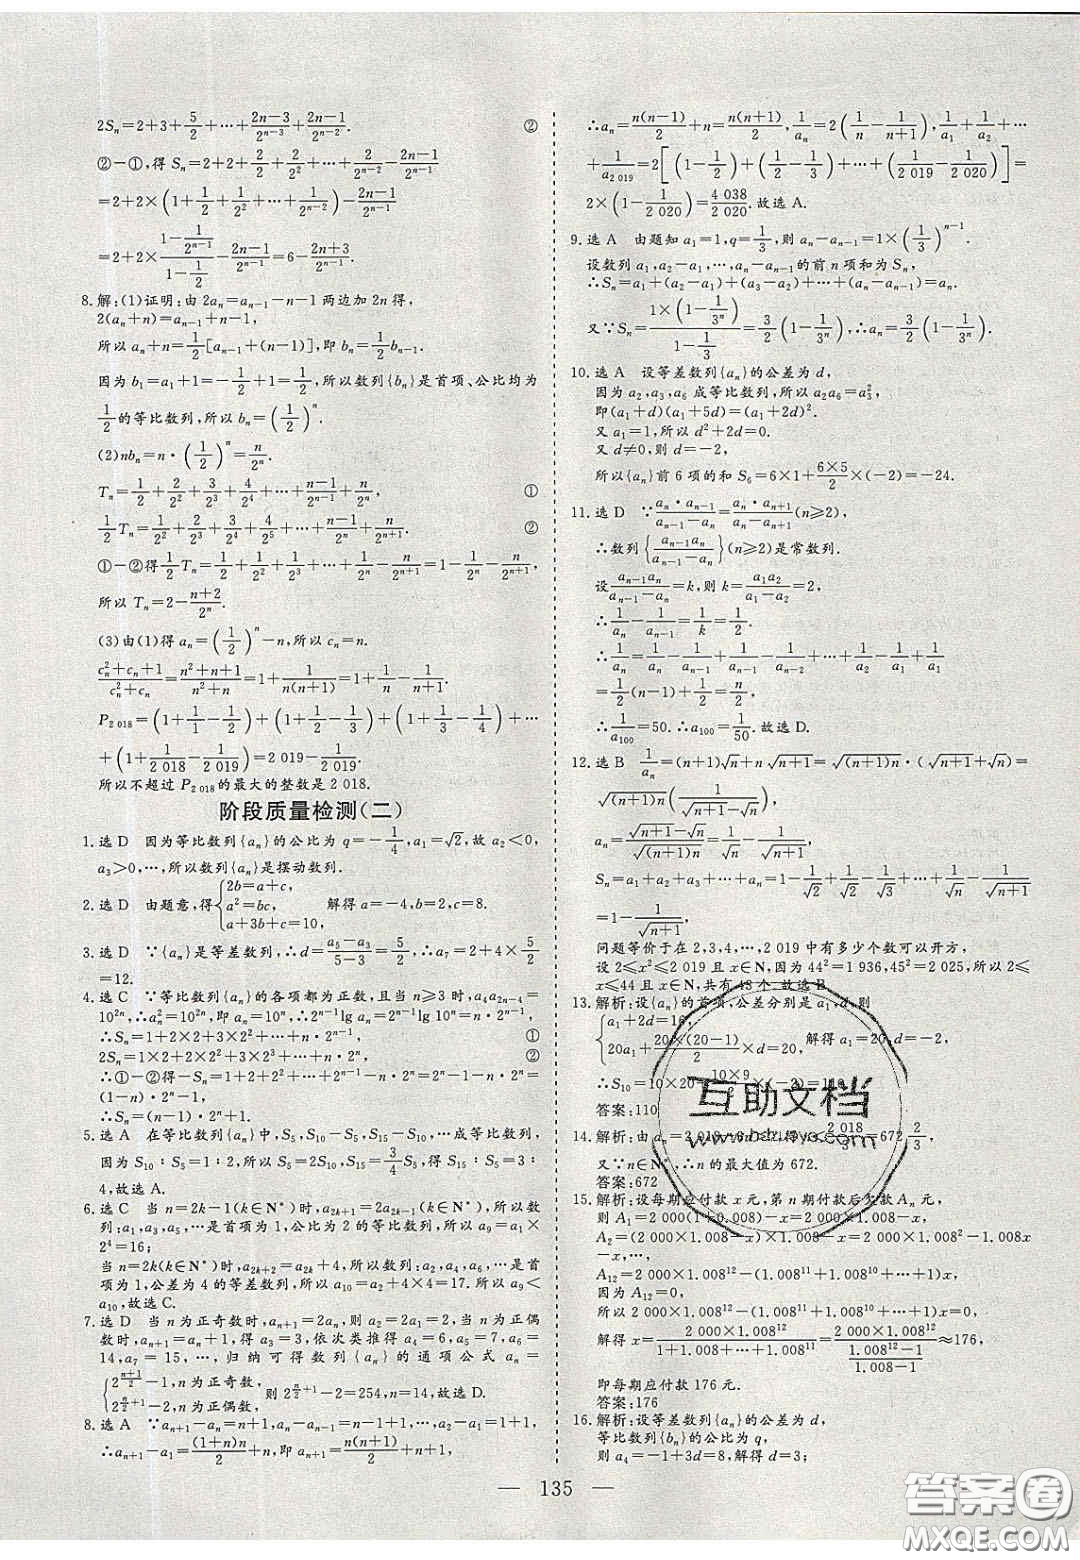 2Sₙ=2+3+5/2+…+(2n−3)/2ⁿ⁻³+(2n−1)/2ⁿ⁻². ②
②−①,得 Sₙ=2+2+2/2+2/2²+…+2/2ⁿ⁻²−(2n−1)/2ⁿ⁻¹
=2+2×(1+1/2+1/2²+…+1/2ⁿ⁻²)−(2n−1)/2ⁿ⁻¹
=2+2×(1−1/2ⁿ⁻¹)/(1−1/2)−(2n−1)/2ⁿ⁻¹=6−(2n+3)/2ⁿ⁻¹.
8.解:(1)证明:由 2aₙ=aₙ₋₁−n−1 两边加 2n 得,
2(aₙ+n)=aₙ₋₁+n−1,
所以 aₙ+n=1/2[aₙ₋₁+(n−1)],即 bₙ=1/2bₙ₋₁.
因为 b₁=a₁+1=−1/2+1=1/2,所以数列{bₙ}是首项、公比均为
1/2的等比数列,所以 bₙ=(1/2)ⁿ.
(2)nbₙ=n·(1/2)ⁿ=n/2ⁿ.
Tₙ=1/2+2/2²+3/2³+4/2⁴+…+(n−1)/2ⁿ⁻¹+n/2ⁿ, ①
1/2Tₙ=1/2²+2/2³+3/2⁴+4/2⁵+…+(n−1)/2ⁿ+n/2ⁿ⁺¹. ②
①−②得1/2Tₙ=1/2+1/2²+1/2³+…+1/2ⁿ−n/2ⁿ⁺¹=1−1/2ⁿ−n/2ⁿ⁺¹,
所以 Tₙ=2−(n+2)/2ⁿ.
(3)由(1)得 aₙ=(1/2)ⁿ−n,所以 cₙ=n.
(cₙ²+cₙ+1)/(cₙ²+cₙ)=(n²+n+1)/(n²+n)=1+1/(n(n+1))=1+1/n−1/(n+1).
P₂ ₀₁₈=(1+1/1−1/2)+(1+1/2−1/3)+(1+1/3−1/4)+…
+(1+1/2 018−1/2 019)=2 019−1/2 019.
所以不超过 P₂ ₀₁₈的最大的整数是 2 018.
阶段质量检测(二)
1.选 D 因为等比数列{aₙ}的公比为 q=−1/4,a₁=√2,故 a₂<0,
a₃>0,…,所以数列{aₙ}是摆动数列.
2.选 D 由题意,得{2b=a+c, a²=bc, a+3b+c=10, 解得 a=−4,b=2,c=8.
3.选 D ∵{aₙ}是等差数列,∴d=(a₅−a₃)/(5−3)=5/2,∴a₇=2+4×5/2
=12.
4.选 C ∵等比数列{aₙ}的各项都为正数,且当 n⩾3 时,a₄a₂ₙ₋₄=
10²ⁿ,∴aₙ²=10²ⁿ,即 aₙ=10ⁿ,∴2ⁿ⁻¹lg aₙ=2ⁿ⁻¹lg 10ⁿ=n·2ⁿ⁻¹,
∴Sₙ=1+2×2+3×2²+…+n·2ⁿ⁻¹, ①
2Sₙ=1×2+2×2²+3×2³+…+n·2ⁿ, ②
∴①−②得−Sₙ=1+2+2²+…+2ⁿ⁻¹−n·2ⁿ=2ⁿ−1−n·2ⁿ=
(1−n)·2ⁿ−1,∴Sₙ=(n−1)·2ⁿ+1.
5.选 A 在等比数列{aₙ}中,S₅,S₁₀−S₅,S₁₅−S₁₀,…成等比数列,
因为 S₁₀∶S₅=1∶2,所以 S₅=2S₁₀,S₁₅=3/4S₅,得 S₁₅∶S₅=3∶
4,故选 A.
6.选 C 当 n=2k−1(k∈N*)时,a₂ₖ₊₁=2a₂ₖ₋₁(k∈N*),所以数
列:a₁,a₃,a₅,…是首项为 1,公比为 2 的等比数列,所以 a₉=1×
2⁴=16;
当 n=2k(k∈N*)时,a₂ₖ₊₂=a₂ₖ+4,所以数列:a₂,a₄,a₆,…是首
项为 1,公差为 4 的等差数列,所以 a₁₀=a₂+4×4=17.所以 a₉<
a₁₀,故选 C.
7.选 D 当 n 为正奇数时,aₙ₊₁=2aₙ,则 a₂=2a₁=2,当 n 为正偶
数时,aₙ₊₁=aₙ+1,得 a₃=3,依次类推得 a₄=6,a₅=7,a₆=14,
a₇=15,…,归纳可得数列{aₙ}的通项公式 aₙ=
{2^((n+1)/2)−1,n为正奇数, 2^(n/2+1)−2,n为正偶数, 则 2^(n/2+1)−2=254,n=14,故选 D.
8.选 A ∵aₙ₊₁−aₙ=n+1,aₙ−aₙ₋₁=n−1+1,…,a₂−a₁=1+1,
∴aₙ₊₁−a₁=(1+n)n/2+n,即 aₙ₊₁=n(n+1)/2+n+1,
∴aₙ=n(n−1)/2+n=n(n+1)/2,1/aₙ=2(1/n−1/(n+1)),1/a₁+1/a₂+…
+1/a₂ ₀₁₉=2[(1−1/2)+(1/2−1/3)+…+(1/2 019−1/2 020)]=
2×(1−1/2 020)=4 038/2 020.故选 A.
9.选 A 由题知 a₁=1,q=1/3,则 aₙ−aₙ₋₁=1×(1/3)ⁿ⁻¹.
设数列 a₁,a₂−a₁,…,aₙ−aₙ₋₁的前 n 项和为 Sₙ,
∴Sₙ=a₁+(a₂−a₁)+(a₃−a₂)+…+(aₙ−aₙ₋₁)=aₙ.
又∵Sₙ=1×(1−1/3ⁿ)/(1−1/3)=3/2(1−1/3ⁿ),∴aₙ=3/2(1−1/3ⁿ).
10.选 A 设等差数列{aₙ}的公差为 d,
因为 a₂,a₃,a₆ 成等比数列,所以 a₂a₆=a₃²,
即(a₁+d)(a₁+5d)=(a₁+2d)².
又 a₁=1,所以 d²+2d=0.
又 d≠0,则 d=−2,
所以{aₙ}前 6 项的和 S₆=6×1+6×5/2×(−2)=−24.
11.选 D ∵aₙ·aₙ₋₁/(aₙ₋₁−aₙ)=aₙ·aₙ₊₁/(aₙ−aₙ₊₁)(n⩾2),
∴数列{aₙ₋₁aₙ/(aₙ₋₁−aₙ)}(n⩾2)是常数列.
设aₙ₋₁aₙ/(aₙ₋₁−aₙ)=k,则 k=a₁a₂/(a₁−a₂)=2,
∴1/aₙ−1/aₙ₋₁=1/k=1/2.
∴1/aₙ=1/aₙ−1/aₙ₋₁+1/aₙ₋₁−1/aₙ₋₂+…+1/a₂−1/a₁+1/a₁
=1/2(n−1)+1/2=n/2,
∴1/a₁₀₀=50.∴a₁₀₀=1/50.故选 D.
12.选 B 1/aₙ=(n+1)√n+n√(n+1)=√(n(n+1))·(√(n+1)+√n)=
√(n(n+1))(1/(√(n+1)−√n)),
aₙ=(√(n+1)−√n)/√(n(n+1))=1/√n−1/√(n+1),
Sₙ=a₁+a₂+a₃+…+aₙ=1−1/√2+1/√2−1/√3+…+1/√n−1/√(n+1)
=1−1/√(n+1),
问题等价于在 2,3,4,…,2 019 中有多少个数可以开方,
设 2⩽x²⩽2 019 且 x∈N,因为 44²=1 936,45²=2 025,所以 2⩽
x⩽44 且 x∈N,共有 43 个.故选 B.
13.解析:设{aₙ}的首项,公差分别是 a₁,d,则
{a₁+2d=16, 20a₁+20×(20−1)/2×d=20, 解得 a₁=20,d=−2,
∴S₁₀=10×20+10×9/2×(−2)=110.
答案:110
14.解析:由 aₙ=2 018−3n>0,得 n<2 018/3=672 2/3,
又∵n∈N*,∴n 的最大值为 672.
答案:672
15.解析:设每期应付款 x 元,第 n 期付款后欠款 Aₙ 元,
则 A₁=2 000(1+0.008)−x=2 000×1.008−x,
A₂=(2 000×1.008−x)×1.008−x=2 000×1.008²−1.008x
−x,…,
A₁₂=2 000×1.008¹²−(1.008¹¹+1.008¹⁰+…+1)x,
因为 A₁₂=0,
所以 2 000×1.008¹²−(1.008¹¹+1.008¹⁰+…+1)x=0,
解得 x=2 000×1.008¹²/(1+1.008+…+1.008¹¹)=2 000×1.008¹²/((1.008¹²−1)/(1.008−1))≈176,
即每期应付款 176 元.
答案:176
16.解析:设等差数列{aₙ}的公差为 d,
等比数列{bₙ}的公比为 q,
则 a₄=−1+3d=8,解得 d=3;
135
互助文档
答案圈
MXQE.COM